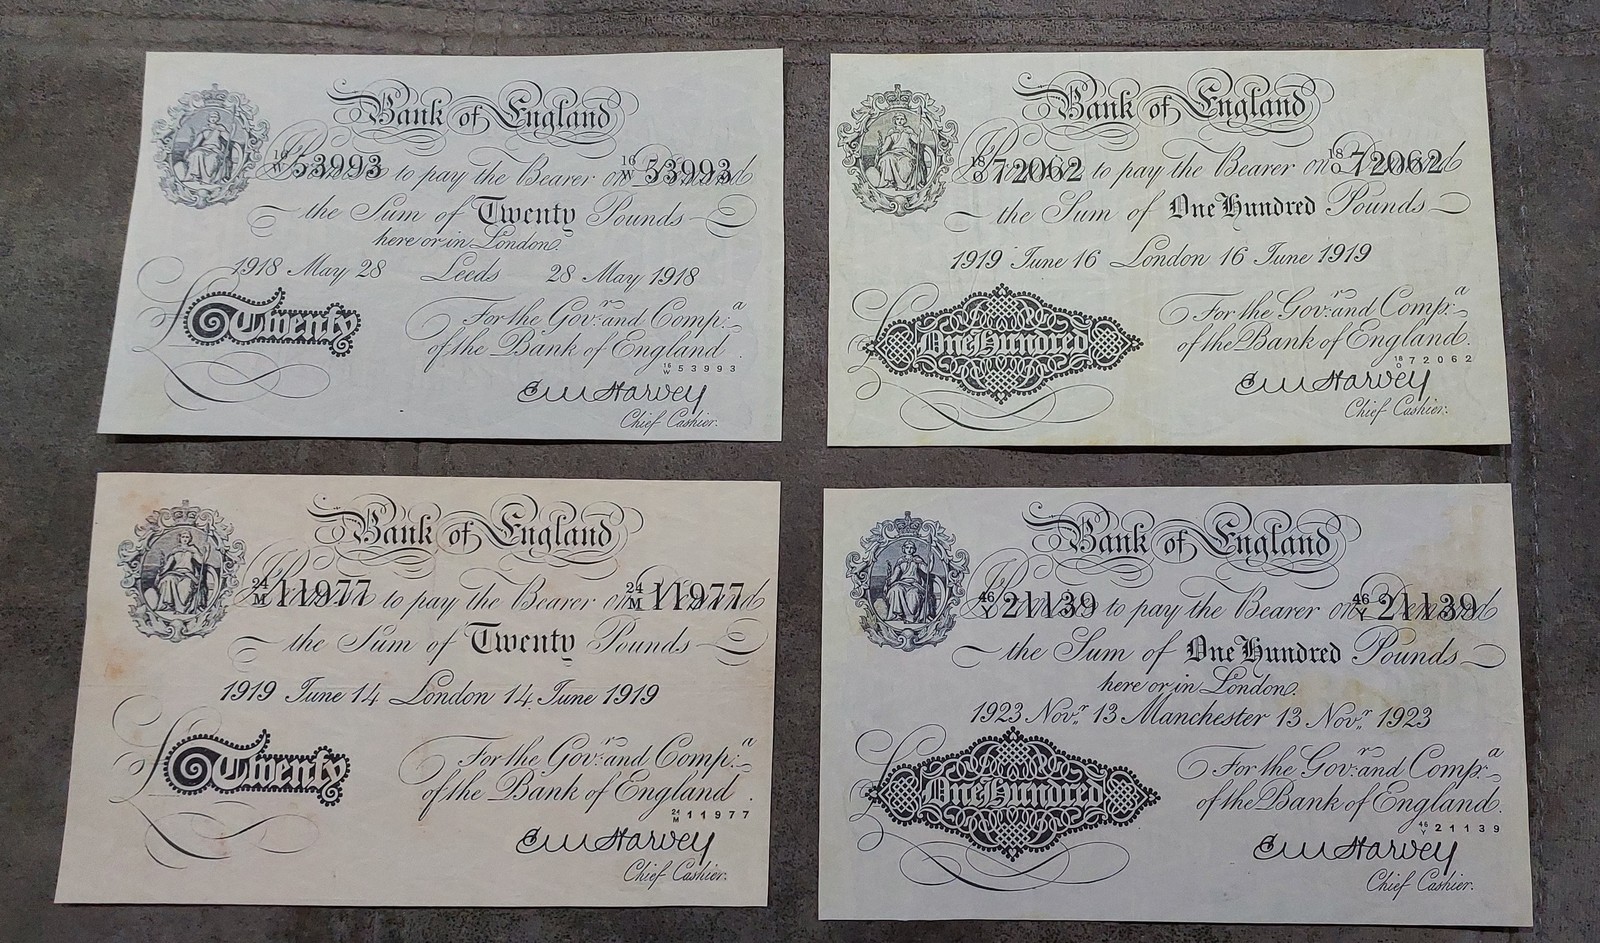 Bank of England
16 W 53993 to pay the Bearer on Demand 16 W 53993
the Sum of Twenty Pounds
here or in London.
1918 May 28 Leeds 28 May 1918
£ Twenty
For the Gov.r and Comp.a
of the Bank of England.
16 W 53993
E M Harvey
Chief Cashier.
Bank of England
18 O 72062 to pay the Bearer on Demand 18 O 72062
the Sum of One Hundred Pounds
1919 June 16 London 16 June 1919
£ One Hundred
For the Gov.r and Comp.a
of the Bank of England.
18 O 72062
E M Harvey
Chief Cashier.
Bank of England
24 M 11977 to pay the Bearer on Demand 24 M 11977
the Sum of Twenty Pounds
1919 June 14 London 14 June 1919
£ Twenty
For the Gov.r and Comp.a
of the Bank of England.
24 M 11977
E M Harvey
Chief Cashier.
Bank of England
46 Y 21139 to pay the Bearer on Demand 46 Y 21139
the Sum of One Hundred Pounds
here or in London.
1923 Nov.r 13 Manchester 13 Nov.r 1923
£ One Hundred
For the Gov.r and Comp.a
of the Bank of England.
46 Y 21139
E M Harvey
Chief Cashier.